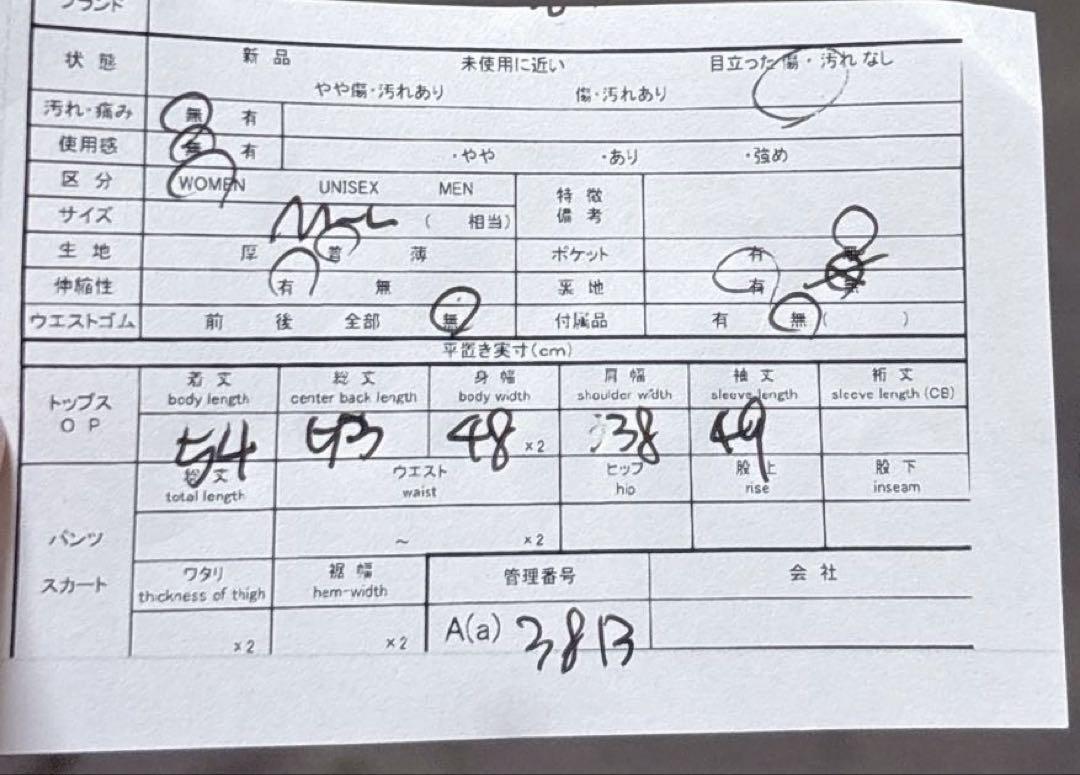 ブランド
状態 新品 未使用に近い 目立った傷・汚れなし
やや傷・汚れあり 傷・汚れあり
汚れ・痛み 無 有
使用感 無 有 ・やや ・あり ・強め
区分 WOMEN UNISEX MEN 特徴
備考
サイズ ( 相当)
生地 厚 普 薄 ポケット 有 無
伸縮性 有 無 裏地 有 無
ウエストゴム 前 後 全部 無 付属品 有 無 ( )
平置き実寸(cm)
トップス
OP
着丈 総丈 身幅 肩幅 袖丈 裄丈
body length center back length body width shoulder width sleeve length sleeve length (CB)
54 53 48 ×2 38 49
総丈 ウエスト ヒップ 股上 股下
total length waist hip rise inseam
パンツ ~ ×2
スカート
ワタリ 裾幅 管理番号 会社
thickness of thigh hem-width
×2 ×2 A(a) 3813